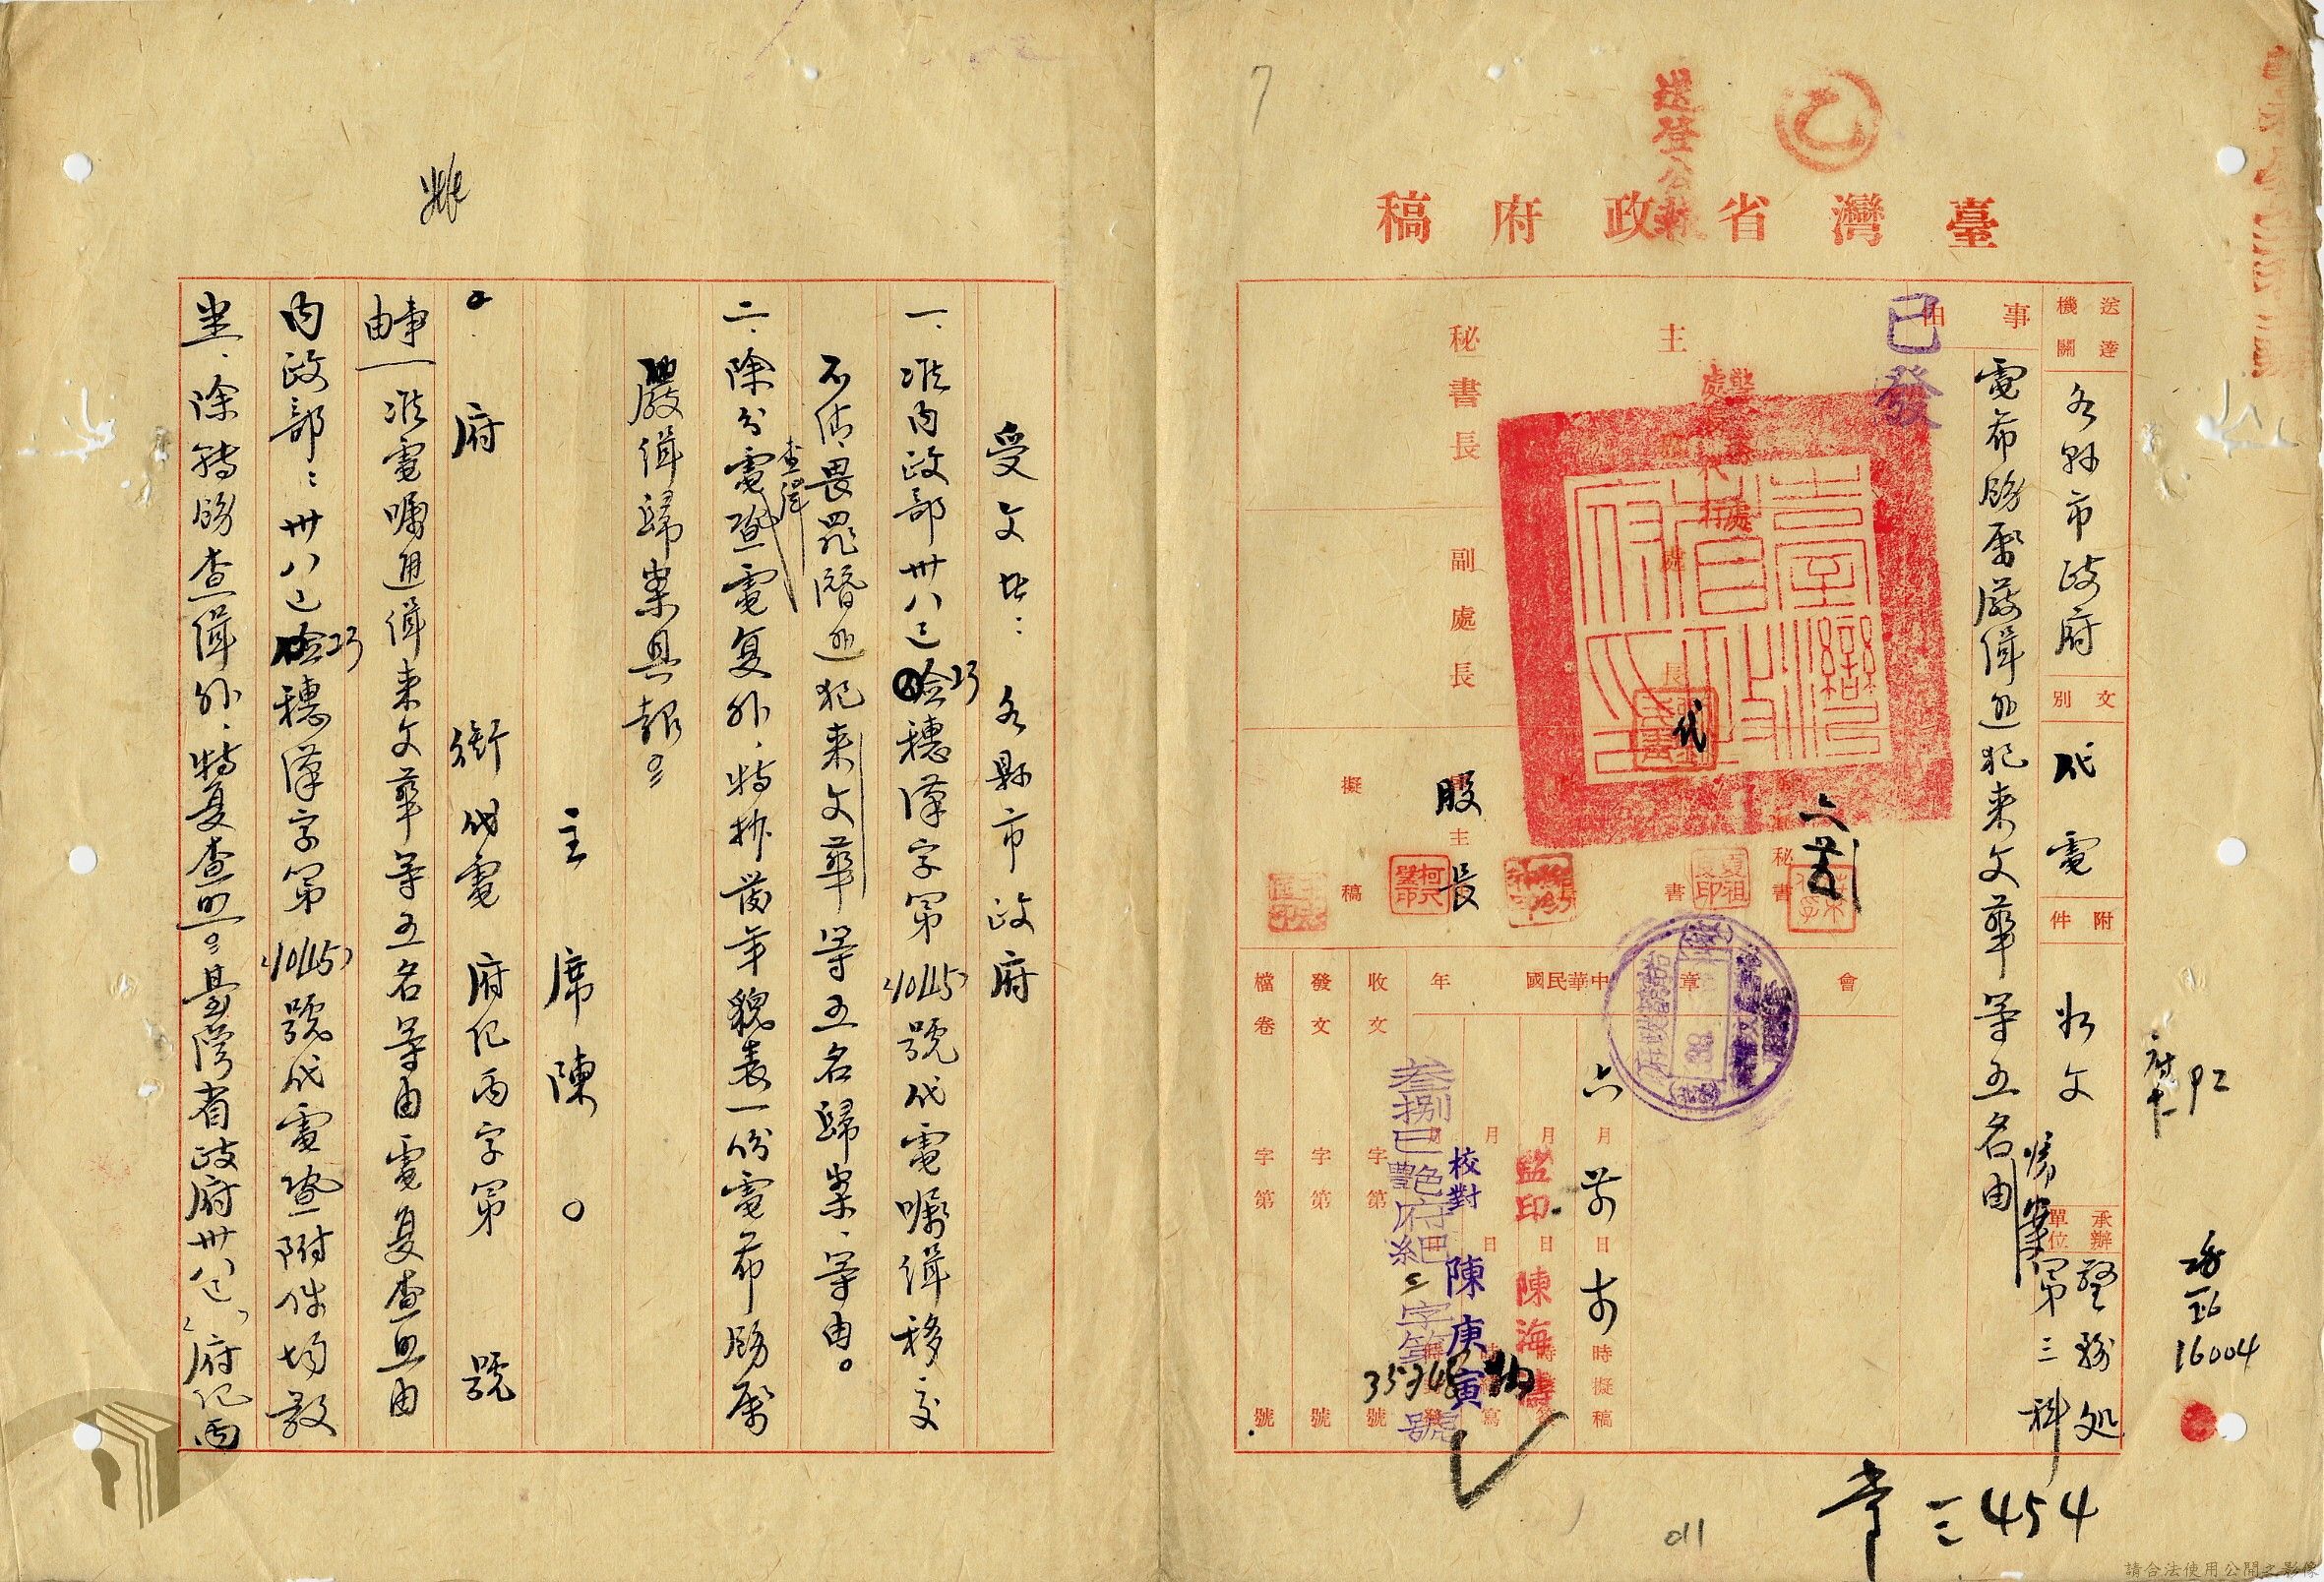 臺灣省政府稿
乙
送登公報
已發
送達機關
各縣市政府
文別
代電
附件
如文
承辦單位
警務処
第三科
事由
電希飭屬嚴緝逃犯束文華等五名由
主
秘書長
副處長
處長
代
股長
主
秘書
書
擬稿
會章
中華民國
年
月
日
時擬稿
監印 陳海濤
校對 陳庚寅
叁捌巳艷府紀 字第 號
收文
字第
號
發文
字第
號
檔卷
字第
號
16004
454
011
受文者：各縣市政府
一、准內政部卅八巳儉穗漢字第10115號代電囑緝移交
不法畏罪潛逃犯束文華等五名歸案、等由。
二、除分電查緝暨電复外、特抄發年貌表一份電希飭屬
嚴緝歸案具報。
主席陳〇
府銜代電 府紀丙字第 號
事由 准電囑通緝束文華等五名等由電复查照由
內政部：卅八巳儉穗漢字第10115號代電暨附件均敬
悉、除轉飭查緝外、特复查照。臺灣省政府卅八巳 府紀丙
請合法使用公開之影像